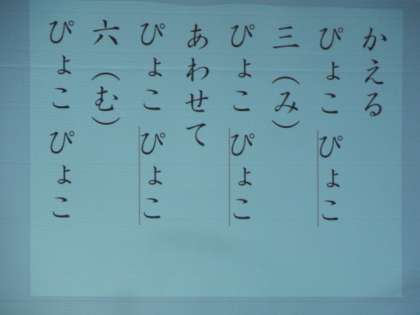 かえる
ぴょこ ぴょこ
三(み)
ぴょこ ぴょこ
あわせて
ぴょこ ぴょこ
六(む)
ぴょこ ぴょこ